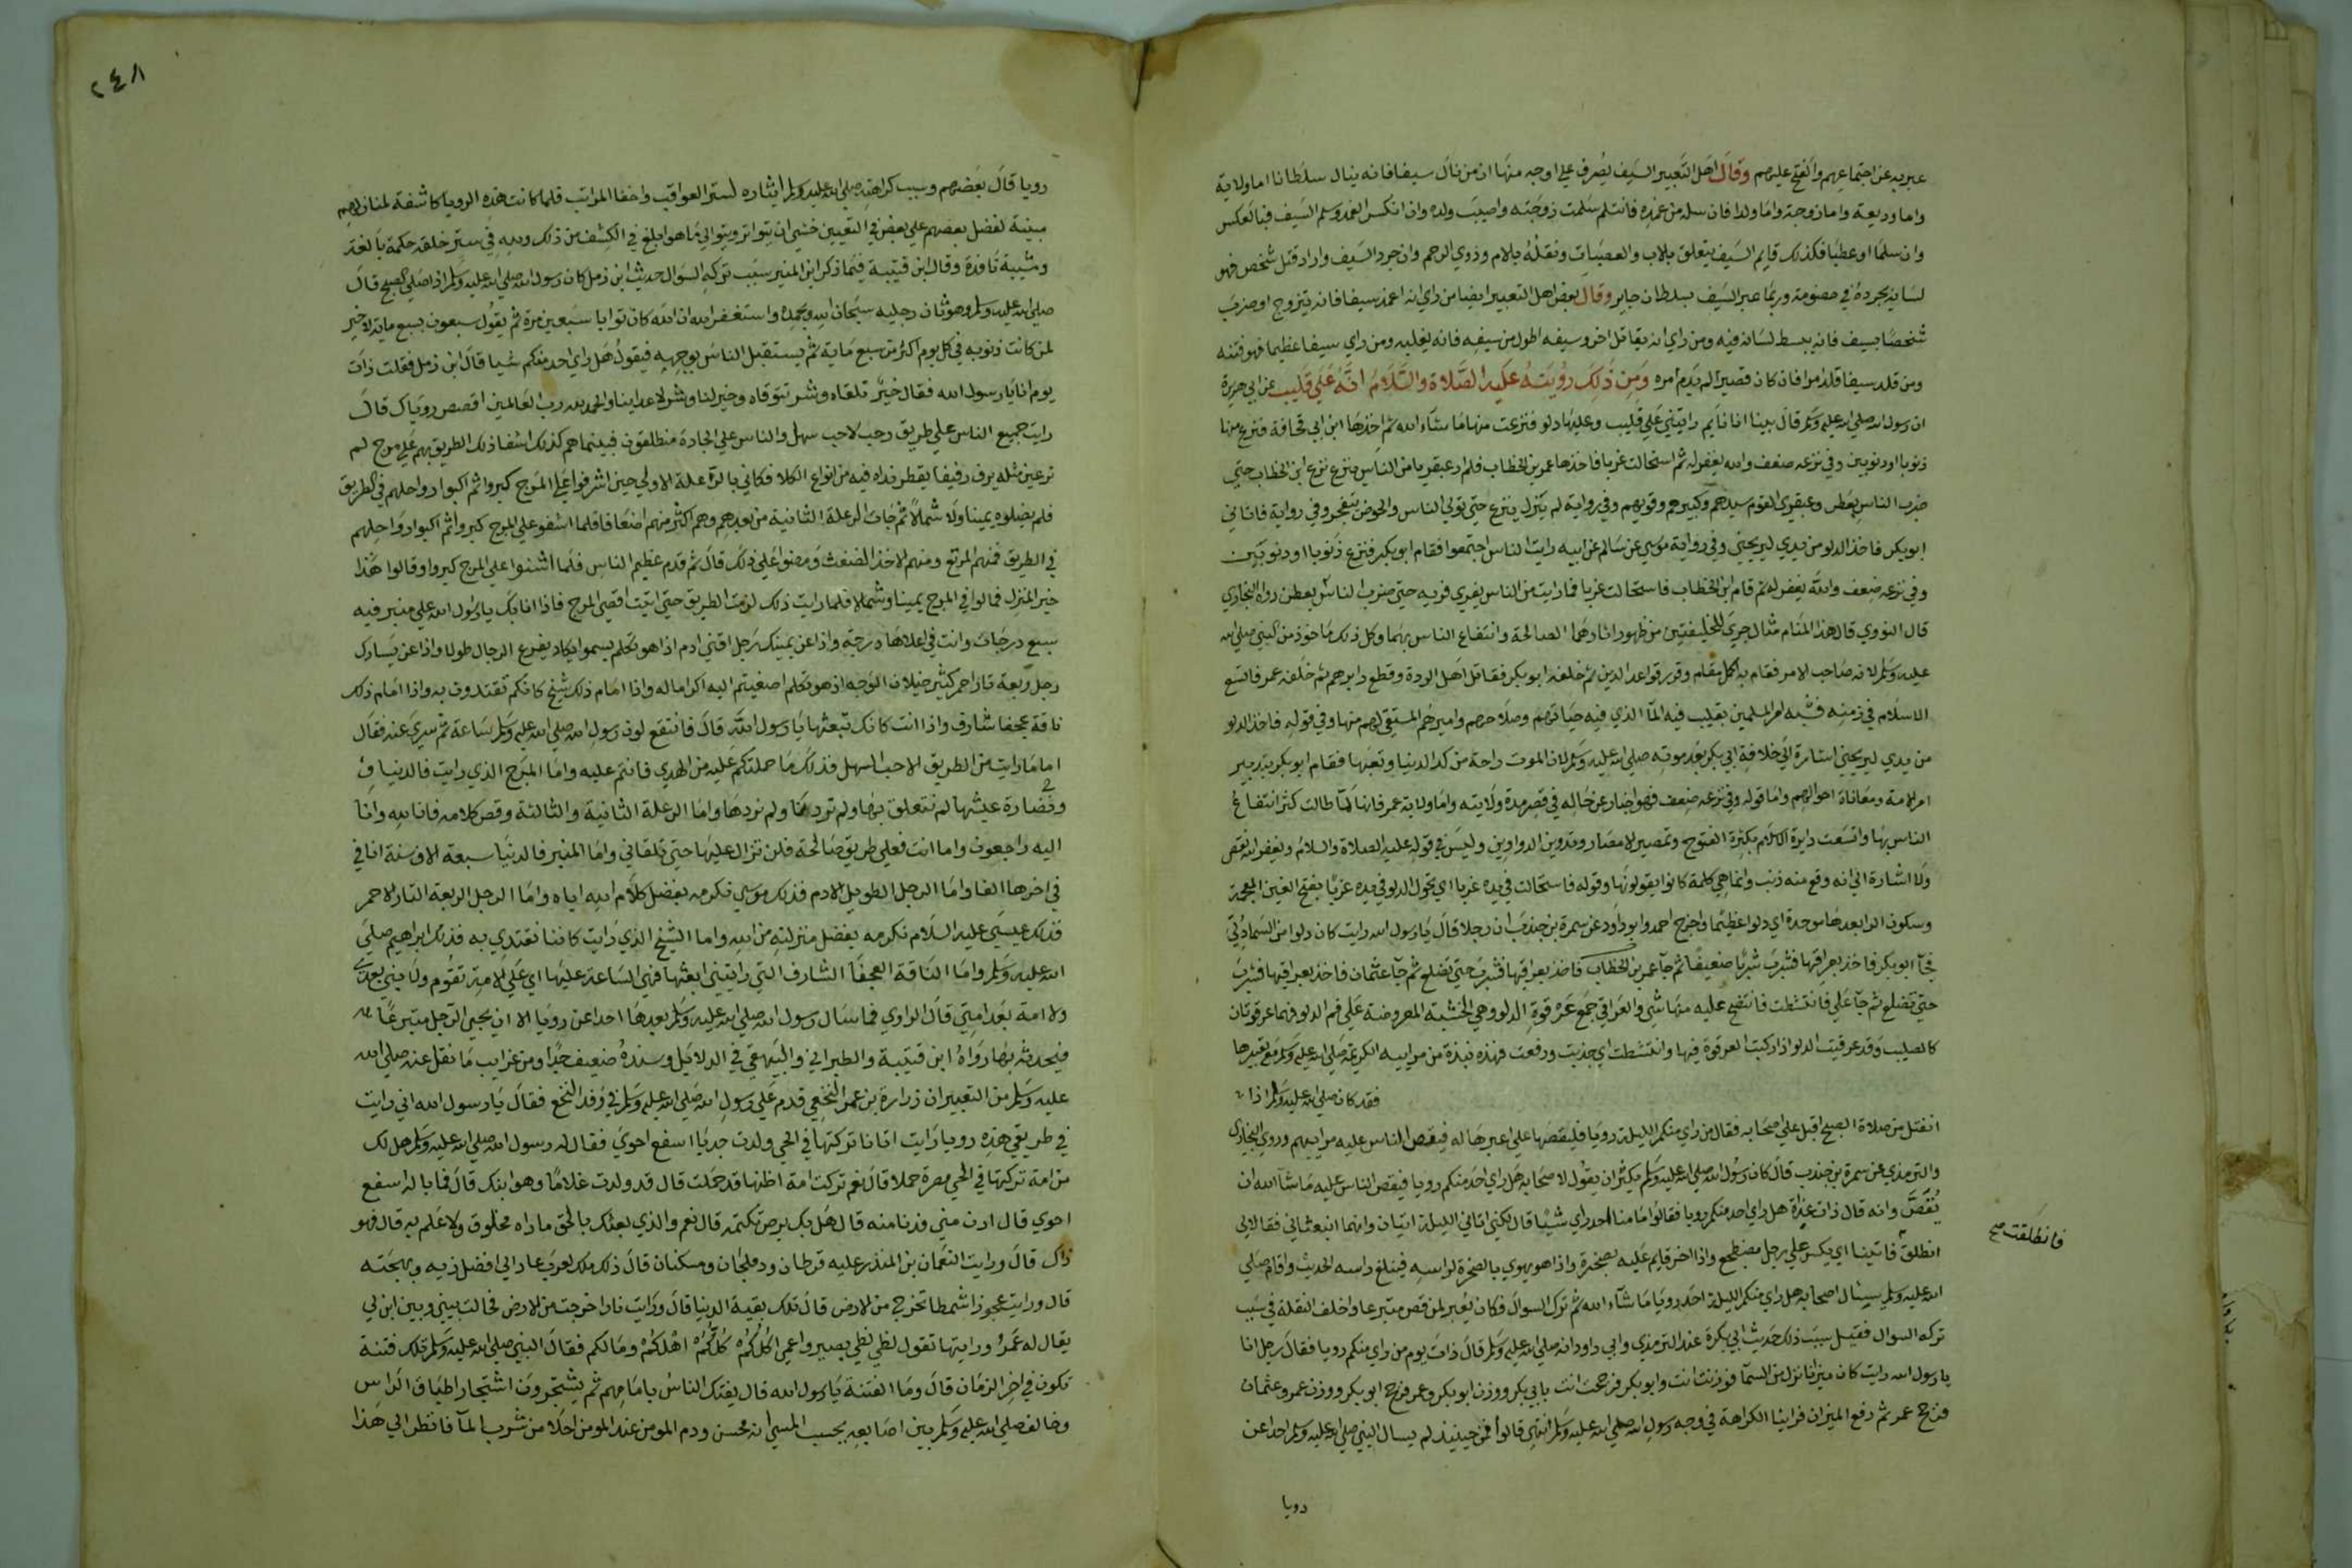 عبر به عن اجتماعهم والفتح عليهم وقال اهل التعبير السيف يصرف على اوجه منها ان من نال سيفا فانه ينال سلطانا اما ولاية
واما وديعة واما زوجة واما ولدا فان سله من غمده فانثلم سلمت زوجته واصيب ولده وان انكسر الغمد وسلم السيف فبالعكس
وان سلما او عطبا فكذلك قايم السيف يتعلق بالاب والعصبات ونصله بالام وذوي الرحم وان جرد السيف واراد قتل شخص فهو
لسانه يجرده في خصومة وربما عبر السيف بسلطان جاير وقال بعض اهل التعبير ايضا من راي انه اغمد سيفا فانه يتزوج او ضرب
شخصا بسيف فانه يبسط لسانه فيه ومن راي انه يقاتل اخر وسيفه اطول من سيفه فانه يغلبه ومن راي سيفا عظيما فهو فتنة
ومن قلد سيفا قلد امرا فان كان قصيرا لم يدم امره ومن ذلك رؤيته عليه الصلاة والسلام انه على قليب عن ابي هريرة
ان رسول الله صلى الله عليه وسلم قال بينا انا نايم رايتني على قليب وعليها دلو فنزعت منها ما شاء الله ثم اخذها ابن ابي قحافة فنزع منها
ذنوبا او ذنوبين وفي نزعه ضعف والله يغفر له ثم استحالت غربا فاخذها عمر بن الخطاب فلم ار عبقريا من الناس ينزع نزع ابن الخطاب حتي
ضرب الناس بعطن وعبقري القوم سيدهم وكبيرهم وقويهم وفي رواية لم يزل ينزع حتي تولي الناس والحوض يتفجر وفي رواية فاتاني
ابو بكر فاخذ الدلو من يدي ليريحني وفي رواية موسي عن سالم عن ابيه رايت الناس اجتمعوا فقام ابو بكر فنزع ذنوبا او ذنوبين
وفي نزعه ضعف والله يغفر له ثم قام ابن الخطاب فاستحالت غربا فما رايت من الناس يفري فريه حتي ضرب الناس بعطن رواه البخاري
قال النووي قال هذا المنام مثال جري للخليفتين من ظهور اثارهما الصالحة وانتفاع الناس بهما وكل ذلك ماخوذ من النبي صلى الله
عليه وسلم لانه صاحب الامر فقام به اكمل مقام وقرر قواعد الدين ثم خلفه ابو بكر فقاتل اهل الردة وقطع دابرهم ثم خلفه عمر فاتسع
الاسلام في زمنه فشبه امر المسلمين بقليب فيه الما الذي فيه حياتهم وصلاحهم واميرهم المستقي لهم منها وفي قوله فاخذ الدلو
من يدي ليريحني اشارة الي خلافة ابي بكر بعد موته صلى الله عليه وسلم لان الموت راحة من كد الدنيا وتعبها فقام ابو بكر بتدبير
امر الامة ومعاناة احوالهم واما قوله وفي نزعه ضعف فهو اخبار عن حاله في قصر مدة ولايته واما ولاية عمر فانها لما طالت كثر انتفاع
الناس بها واتسعت دايرة الاسلام بكثرة الفتوح وتمصير الامصار وتدوين الدواوين وليس في قوله عليه الصلاة والسلام ويغفر الله نقص
ولا اشارة الي انه وقع منه ذنب وانما هي كلمة كانوا يقولونها وقوله فاستحالت في يده غربا اي تحول الدلو في يده غربا بفتح الغين المعجمة
وسكون الرا بعدها موحدة اي دلوا عظيما واخرج احمد وابو داود عن سمرة بن جندب ان رجلا قال يا رسول الله رايت كان دلوا من السما دُلّي
فجا ابو بكر فاخذ بعراقيها فشرب شربا ضعيفا ثم جا عمر بن الخطاب فاخذ بعراقيها فشرب حتي تضلع ثم جا عثمان فاخذ بعراقيها فشرب
حتي تضلع ثم جا علي فانتشطت فانتضح عليه منها شي والعراقي جمع عرقوة الدلو وهي الخشبة المعروضة على فم الدلو فهما عرقوتان
كالصليب وقد عرقيت الدلو اذا ركبت العرقوة فيها وانتشطت اي جذبت ورفعت فهذه نبذة من مرائيه الكريمة صلى الله عليه وسلم مع تعبيرها
فقد كان صلى الله عليه وسلم اذا
انفتل من صلاة الصبح اقبل على اصحابه فقال من راي منكم الليلة رويا فليقصها علي اعبرها له فيقص الناس عليه مرائيهم وروي البخاري
والترمذي عن سمرة بن جندب قال كان رسول الله صلى الله عليه وسلم يكثر ان يقول لاصحابه هل راي احد منكم رويا فيقص الناس عليه ما شا الله ان
يُقصّ وانه قال ذات غداة هل راي احد منكم رويا فقالوا ما منا احد راي شيئا قال لكني اتاني الليلة اتيان وانهما ابتعثاني فقالا لي
انطلق فاتينا اي يكسر علي رجل مضطجع واذا اخر قايم عليه بصخرة واذا هو يهوي بالصخرة لراسه فيثلغ راسه الحديث واقام صلى
الله عليه وسلم يسال اصحابه هل راي منكم الليلة احد رويا ما شاء الله ثم ترك السوال فكان يعبر لمن قص متبرعا واختلف النقلة في سبب
تركه السوال فقيل سبب ذلك حديث ابي بكرة عند الترمذي وابي داود انه صلى الله عليه وسلم قال ذات يوم من راي منكم رويا فقال رجل انا
يا رسول الله رايت كان ميزانا نزل من السما فوزنت انت وابو بكر فرجحت انت بابي بكر ووزن ابو بكر وعمر فرجح ابو بكر ووزن عمر وعثمان
فرجح عمر ثم رفع الميزان فراينا الكراهة في وجه رسول الله صلى الله عليه وسلم انتهى قالوا فمن حينئذ لم يسال النبي صلى الله عليه وسلم احدا عن
رويا
فانطلقت صح
٢٤٨
رويا قال بعضهم وسبب كراهته صلى الله عليه وسلم ايثاره لستر العواقب واخفا المراتب فلما كانت هذه الرويا كاشفة لمنازلهم
مبينة لفضل بعضهم علي بعض في التعيين خشي ان يتواتر ويتوالي ما هو ابلغ في الكشف من ذلك ولله في ستر خلقه حكمة بالغة
ومشيئة نافذة وقال ابن قتيبة فيما ذكر ابن المنير سبب تركه السوال حديث ابن زمل كان رسول الله صلى الله عليه وسلم اذا صلى الصبح قال
صلى الله عليه وسلم وهو ثان رجليه سبحان الله وبحمده واستغفر الله ان الله كان توابا سبعين مرة ثم يقول سبعون بسبع ماية لا خير
لمن كانت ذنوبه في كل يوم اكثر من سبع ماية ثم يستقبل الناس بوجهه فيقول هل راي احد منكم شيا قال ابن زمل فقلت ذات
يوم انا يا رسول الله فقال خير تلقاه وشر تتوقاه وخير لنا وشر لاعداينا والحمد لله رب العالمين اقصص روياك قال
رايت جميع الناس علي طريق رحب لاحب سهل والناس على الجادة منطلقون فبينما هم كذلك اشفا ذلك الطريق بهم على مرج لم
تر عين مثله يرف رفيفا يقطر نداه فيه من انواع الكلا فكاني بالرعلة الاولي حين اشرفوا على المرج كبروا ثم اكبوا رواحلهم في الطريق
فلم يضلوه يمينا ولا شمالا ثم جات الرعلة الثانية من بعدهم وهم اكثر منهم اضعافا فلما اشفوا على المرج كبروا ثم اكبوا رواحلهم
في الطريق فمنهم المرتع ومنهم الاخذ الضغث ومضوا على ذلك قال ثم قدم عظيم الناس فلما اشفوا على المرج كبروا وقالوا هذا
خير المنزل فمالوا في المرج يمينا وشمالا فلما رايت ذلك لزمت الطريق حتي اتيت اقصي المرج فاذا انا بك يا رسول الله على منبر فيه
سبع درجات وانت في اعلاها درجة واذا عن يمينك رجل اقني ادم اذا هو تكلم يسموا يكاد يفرع الرجال طولا واذا عن يسارك
رجل ربعة تار احمر كثير خيلان الوجه اذ هو تكلم اصغيتم اليه اكراما له واذا امام ذلك شيخ كانكم تقتدون به واذا امام ذلك
ناقة عجفا شارف واذا انت كانك تبعثها يا رسول الله قال فانتقع لون رسول الله صلى الله عليه وسلم ساعة ثم سري عنه فقال
اما ما رايت من الطريق الاحب السهل فذلك ما حملتكم عليه من الهدي فانتم عليه واما المرج الذي رايت فالدنيا
وغضارة عيشها لم نتعلق بها ولم تردنا ولم نردها واما الرعلة الثانية والثالثة وقص كلامه فانا لله وانا
اليه راجعون واما انت فعلي طريق صالحة فلن تزال عليها حتي تلقاني واما المنبر فالدنيا سبعة الاف سنة انا في
في اخرها الفا واما الرجل الطويل الادم فذلك موسي نكرمه بفضل كلام الله اياه واما الرجل الربعة التار الاحمر
فذلك عيسي عليه السلام نكرمه بفضل منزلته من الله واما الشيخ الذي رايت كاننا نقتدي به فذلك ابراهيم صلى
الله عليه وسلم واما الناقة العجفا الشارف التي رايتني ابعثها فهي الساعة عليها اي علي الامة تقوم ولا نبي بعدي
ولا امة بعد امتي قال الراوي فما سال رسول الله صلى الله عليه وسلم بعدها احدا عن رويا الا ان يجي الرجل متبرعا
فيحدثه بها رواه ابن قتيبة والطبراني والبيهقي في الدلايل وسنده ضعيف جدا ومن غرايب ما نقل عنه صلى الله
عليه وسلم من التعبير ان زرارة بن عمر النخعي قدم على رسول الله صلى الله عليه وسلم في وفد النخع فقال يا رسول الله اني رايت
في طريقي هذه رويا رايت اتانا تركتها في الحي ولدت جديا اسفع احوي فقال له رسول الله صلى الله عليه وسلم هل لك
من امة تركتها في الحي مصرة حملا قال نعم تركت امة اظنها قد حملت قال قد ولدت غلاما وهو ابنك قال فما باله اسفع
احوي قال ادن مني فدنا منه قال هل بك برص تكتمه قال نعم والذي بعثك بالحق ما راه مخلوق ولا علم به قال فهو
ذاك قال ورايت النعمان بن المنذر عليه قرطان ودملجان ومسكتان قال ذلك ملك العرب عاد الي افضل زيه وبهجته
قال ورايت عجوزا شمطا تخرج من الارض قال تلك بقية الدنيا قال ورايت نارا خرجت من الارض فحالت بيني وبين ابن لي
يقال له عمرو ورايتها تقول لظي لظي بصير واعمي اكلكم كلكم اهلكم ومالكم فقال النبي صلى الله عليه وسلم تلك فتنة
تكون في اخر الزمان قال وما الفتنة يا رسول الله قال يفتك الناس بامامهم ثم يشتجرون اشتجار اطباق الراس
وخالف صلى الله عليه وسلم بين اصابعه يحسب المسي انه محسن ودم المومن عند المومن احلا من شرب الما فانظر الي هذا